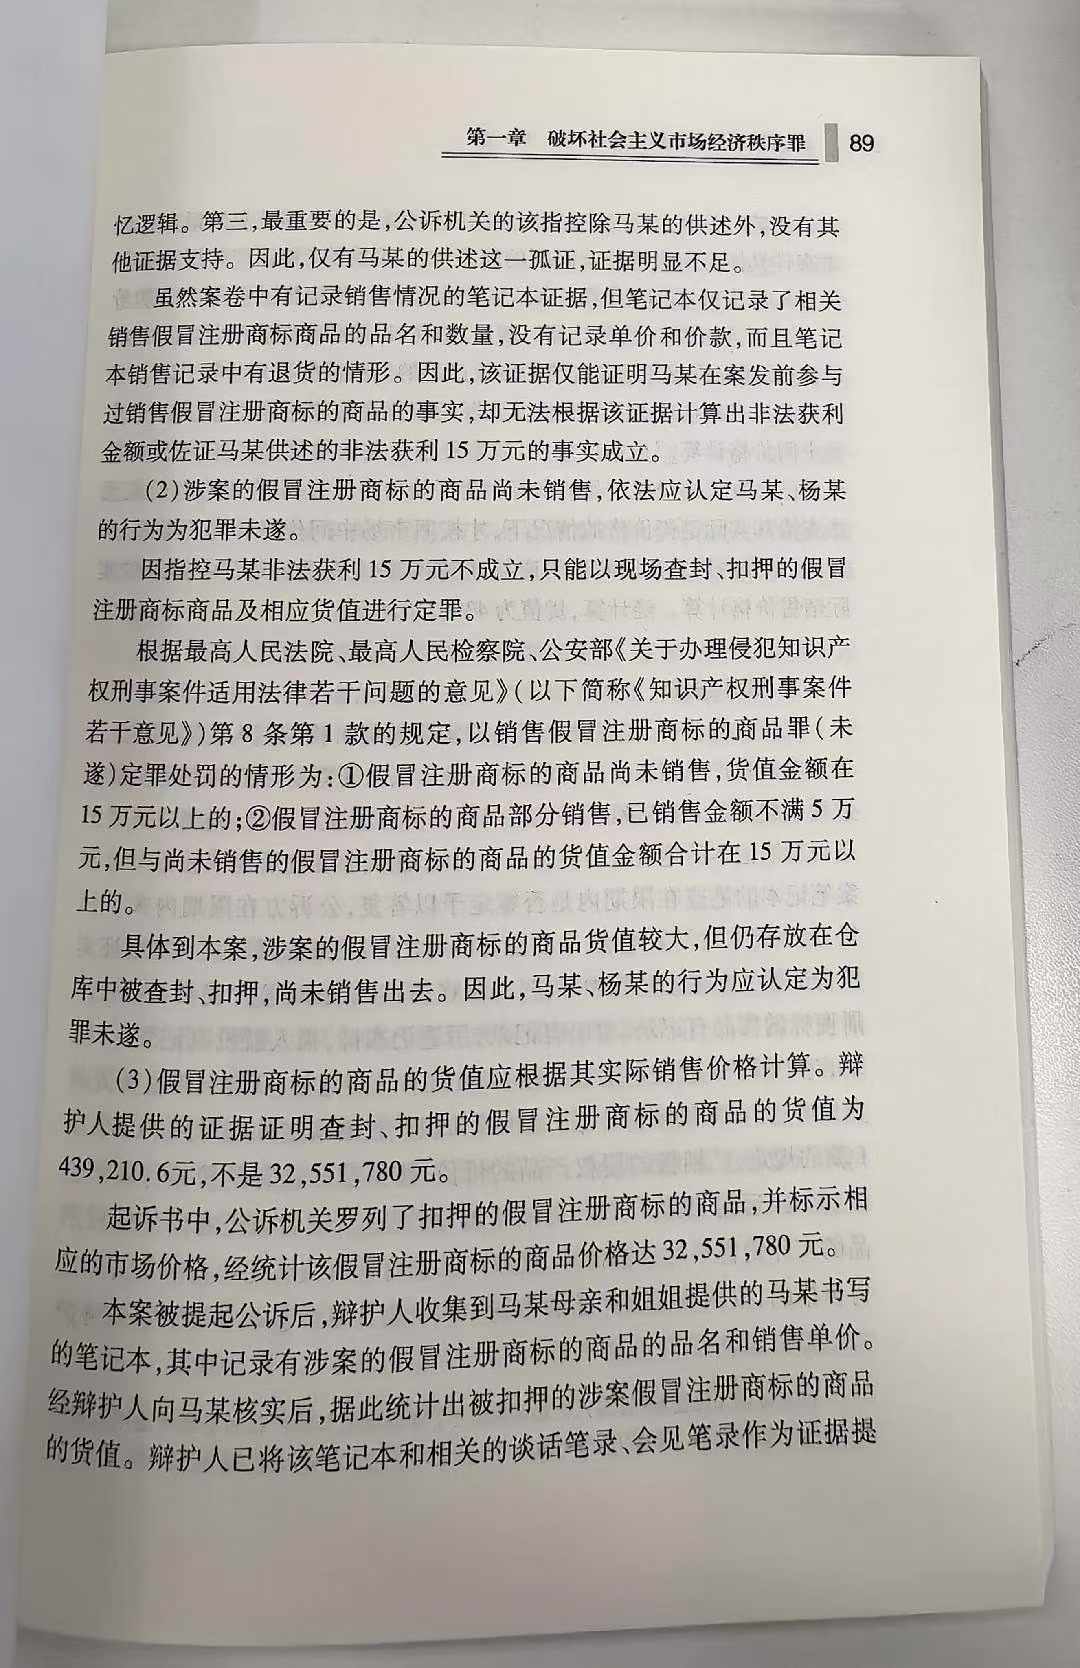 第一章 破坏社会主义市场经济秩序罪 89
忆逻辑。第三,最重要的是,公诉机关的该指控除马某的供述外,没有其
他证据支持。因此,仅有马某的供述这一孤证,证据明显不足。
虽然案卷中有记录销售情况的笔记本证据,但笔记本仅记录了相关
销售假冒注册商标商品的品名和数量,没有记录单价和价款,而且笔记
本销售记录中有退货的情形。因此,该证据仅能证明马某在案发前参与
过销售假冒注册商标的商品的事实,却无法根据该证据计算出非法获利
金额或佐证马某供述的非法获利15万元的事实成立。
(2)涉案的假冒注册商标的商品尚未销售,依法应认定马某、杨某
的行为为犯罪未遂。
因指控马某非法获利15万元不成立,只能以现场查封、扣押的假冒
注册商标商品及相应货值进行定罪。
根据最高人民法院、最高人民检察院、公安部《关于办理侵犯知识产
权刑事案件适用法律若干问题的意见》(以下简称《知识产权刑事案件
若干意见》)第8条第1款的规定,以销售假冒注册商标的商品罪(未
遂)定罪处罚的情形为:①假冒注册商标的商品尚未销售,货值金额在
15万元以上的;②假冒注册商标的商品部分销售,已销售金额不满5万
元,但与尚未销售的假冒注册商标的商品的货值金额合计在15万元以
上的。
具体到本案,涉案的假冒注册商标的商品货值较大,但仍存放在仓
库中被查封、扣押,尚未销售出去。因此,马某、杨某的行为应认定为犯
罪未遂。
(3)假冒注册商标的商品的货值应根据其实际销售价格计算。辩
护人提供的证据证明查封、扣押的假冒注册商标的商品的货值为
439,210.6元,不是32,551,780元。
起诉书中,公诉机关罗列了扣押的假冒注册商标的商品,并标示相
应的市场价格,经统计该假冒注册商标的商品价格达32,551,780元。
本案被提起公诉后,辩护人收集到马某母亲和姐姐提供的马某书写
的笔记本,其中记录有涉案的假冒注册商标的商品的品名和销售单价。
经辩护人向马某核实后,据此统计出被扣押的涉案假冒注册商标的商品
的货值。辩护人已将该笔记本和相关的谈话笔录、会见笔录作为证据提